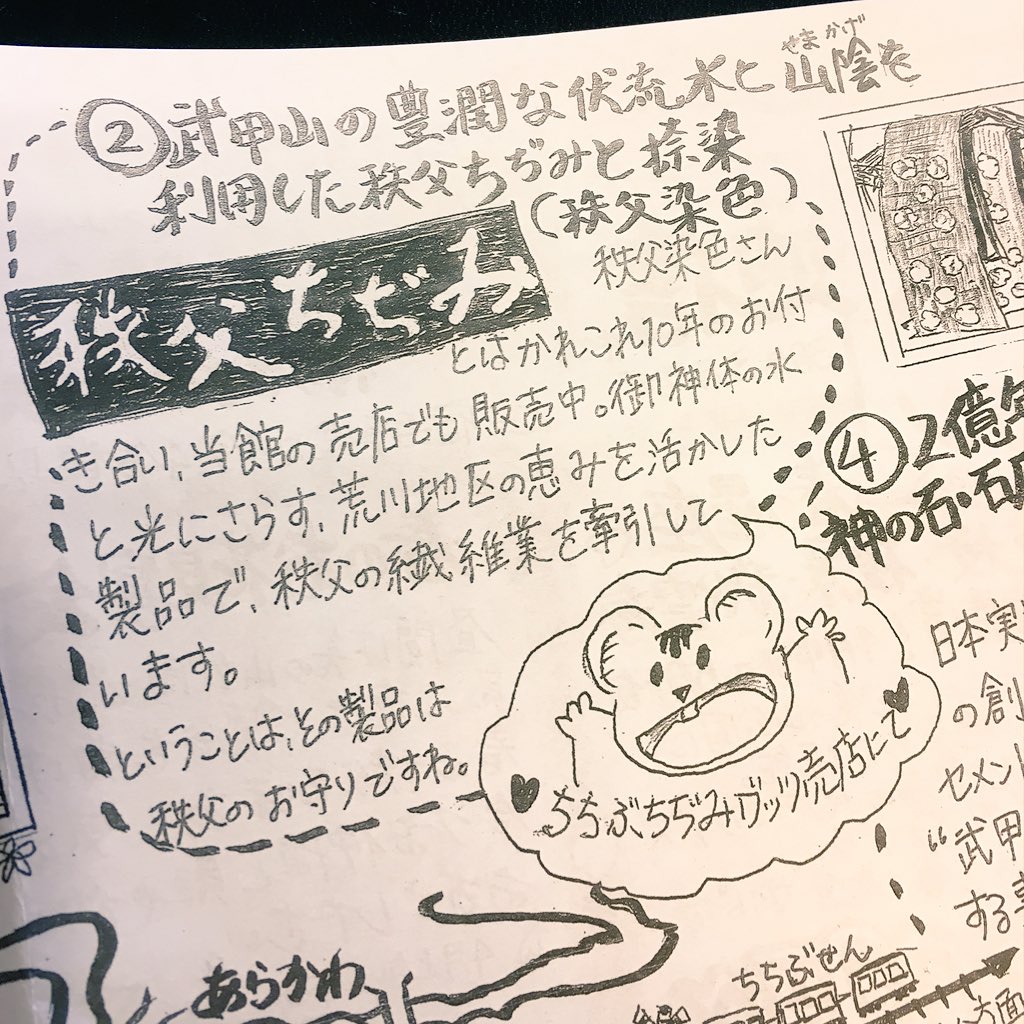 ②武甲山の豊潤な伏流水と山陰を
せまかげ
利用した秩父ちぢみと捺染
(秩父染色)
秩父ちぢみ
秩父染色さん
とはかれこれ10年のお付
き合い、当館の売店でも販売中。御神体の水
と光にさらす、荒川地区の恵みを活かした
製品で、秩父の繊維業を牽引して
います。
ということは、その製品は
秩父のお守りですね。
ちちぶちぢみグッツ売店にて
④2億年
神の石・石
日本実
の創
セメント
“武甲
する
あらかわ
ちちぶせん
方面